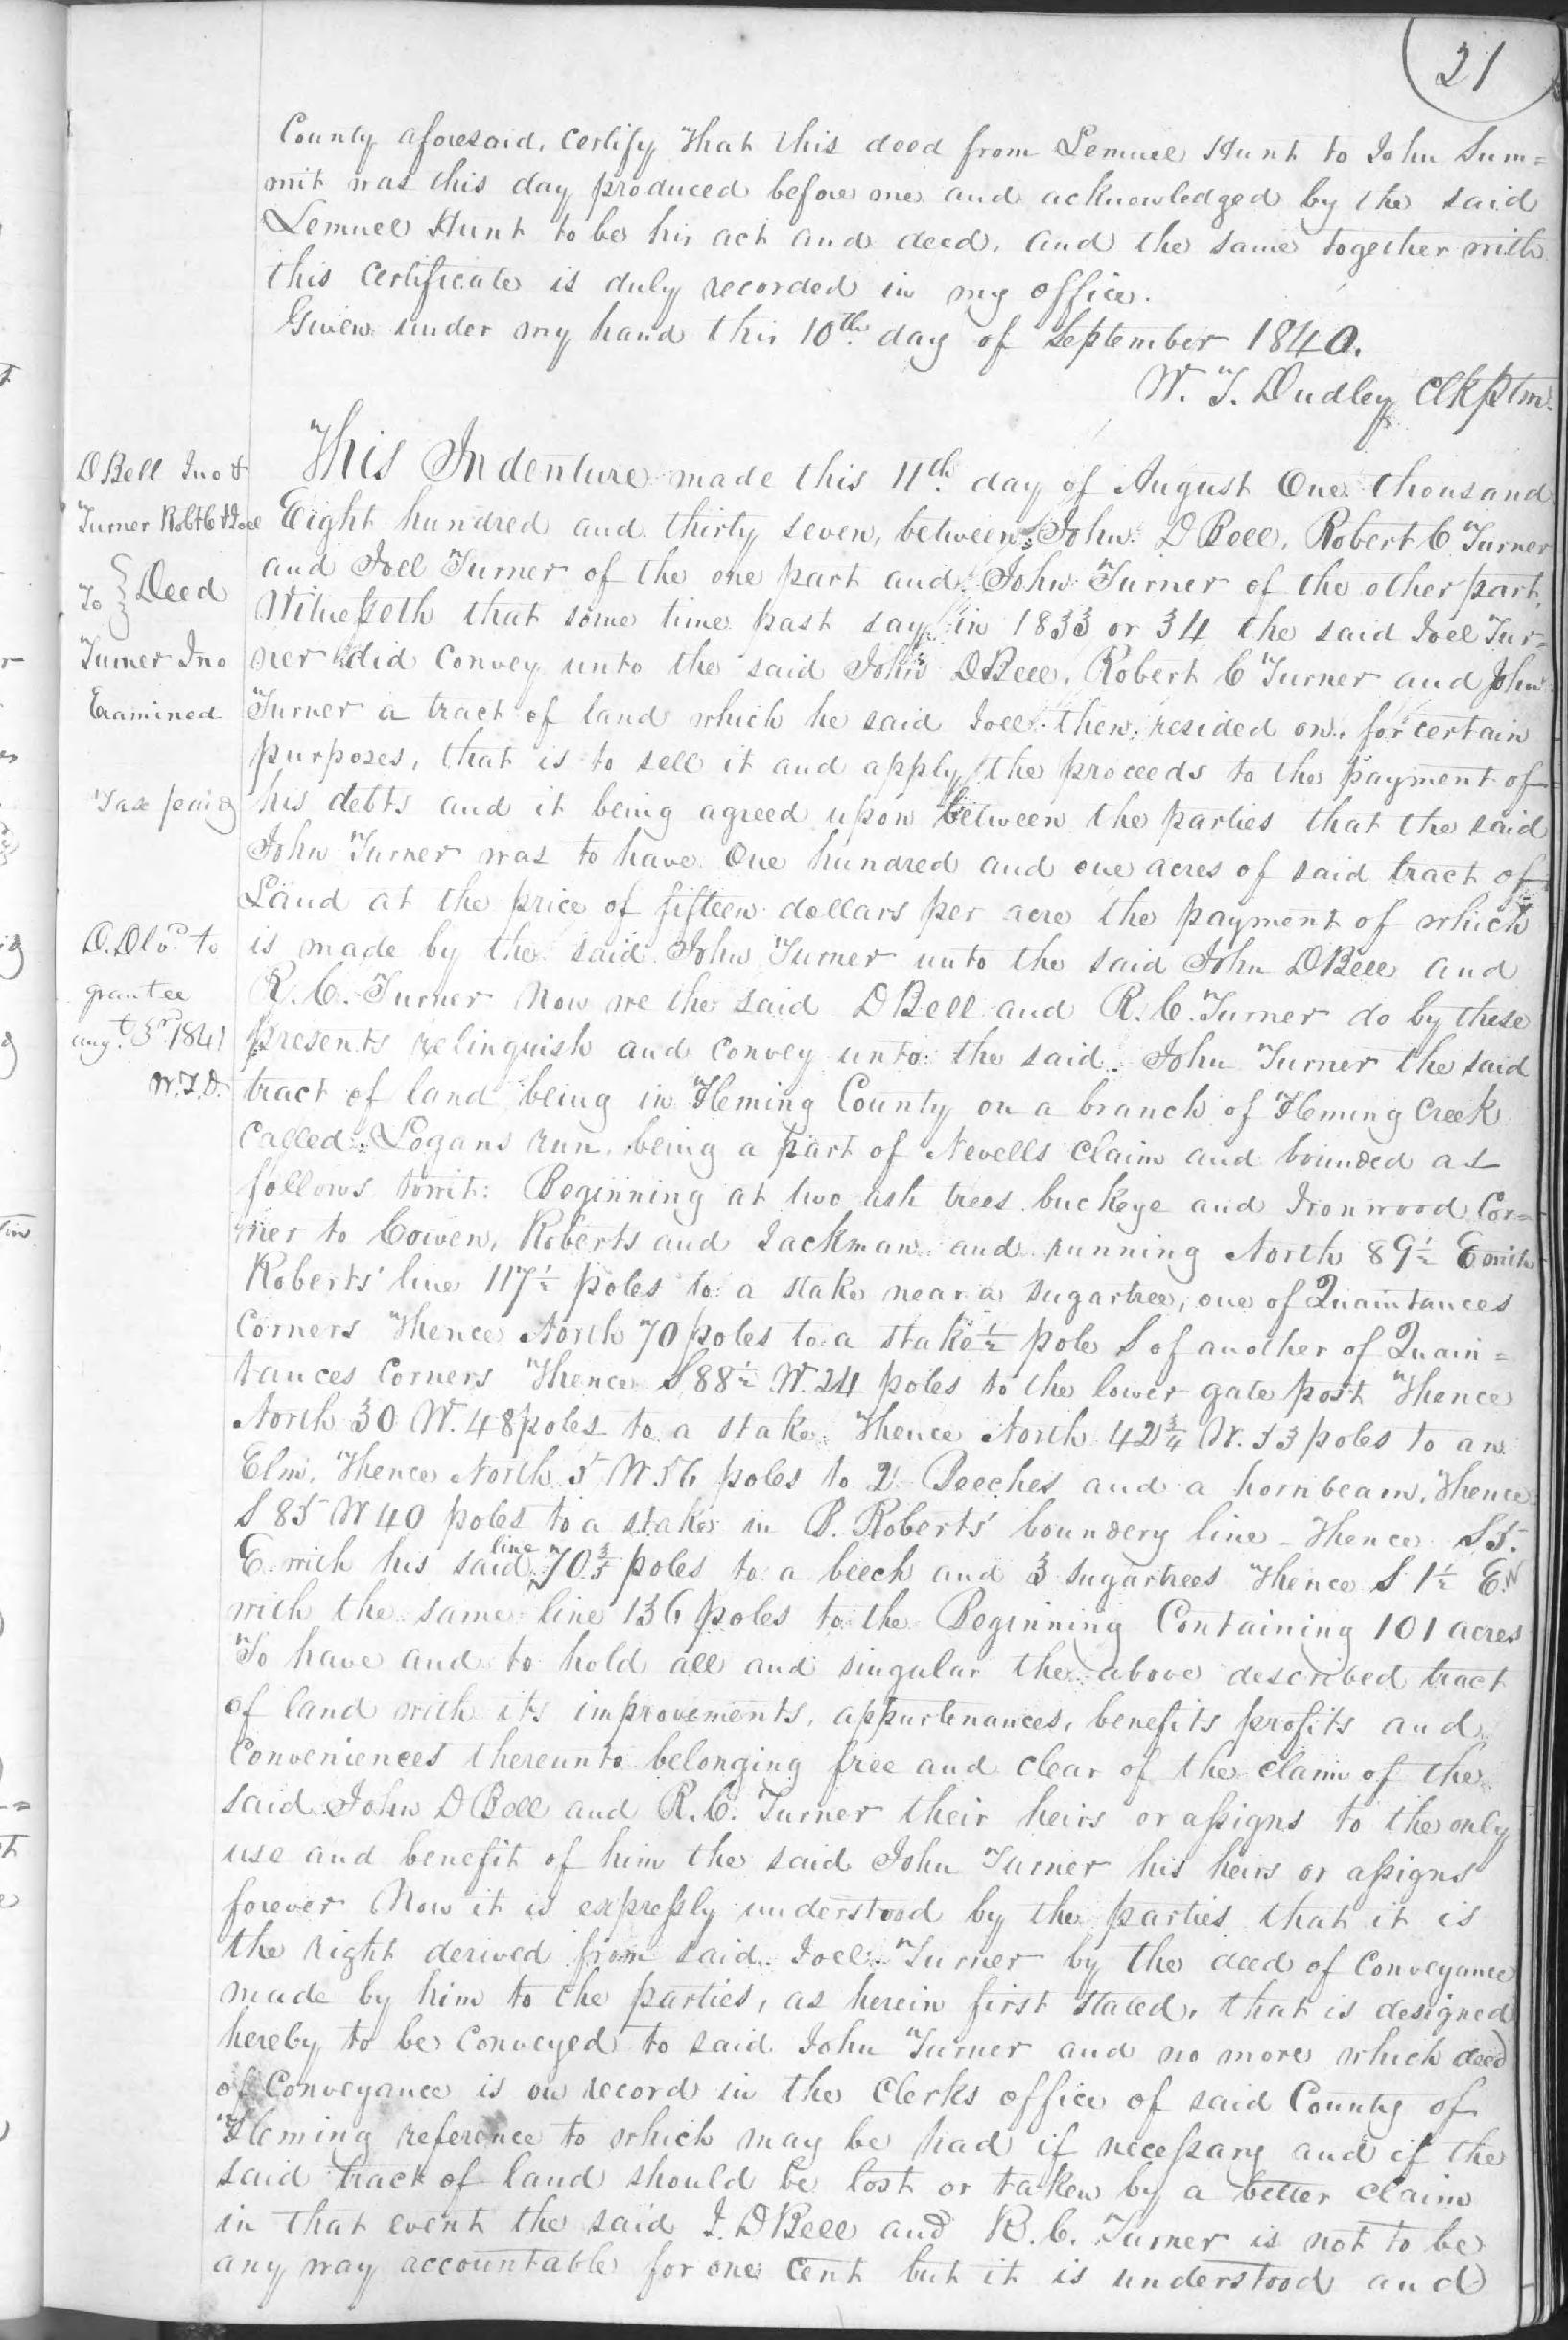 21
County aforesaid, Certify that this deed from Lemuel Hunt to John Sum=
mit was this day produced before me and acknowledged by the said
Lemuel Hunt to be his act and deed, and the same together with
this Certificate is duly recorded in my office.
Given under my hand this 10th day of September 1840.
W. T. Dudley Clk
DBell Jno &
Turner Robt C & Joel
To } Deed
Turner Jno
Examined
Tax paid
D. Dlvd to
grantee
augt 3rd 1841
W.T.D.
This Indenture made this 11th day of August One thousand
Eight hundred and thirty seven, between John DBell, Robert C Turner
and Joel Turner of the one part and John Turner of the other part,
Witnesseth that some time past say in 1833 or 34 the said Joel Tur=
ner did Convey unto the said John DBell, Robert C Turner and John
Turner a tract of land which he said Joel then resided on, for certain
purposes, that is to sell it and apply the proceeds to the payment of
his debts and it being agreed upon between the parties that the said
John Turner was to have One hundred and one acres of said tract of
Land at the price of fifteen dollars per acre the payment of which
is made by the said John Turner unto the said John DBell and
R. C. Turner Now we the said DBell and R. C. Turner do by these
presents relinquish and Convey unto the said John Turner the said
tract of land being in Fleming County on a branch of Fleming Creek
Called Logans run, being a part of Nevells Claim and bounded as
follows towit: Beginning at two ash trees buckeye and Ironwood Cor=
ner to Cowen, Roberts and Jackman and running North 89½ E with
Roberts' line 117½ poles to a stake near a sugartree, one of Quaintances
Corners Thence North 70 poles to a stake ½ pole S of another of Quain=
tances Corners Thence S 88½ W. 24 poles to the lower gate post Thence
North 30 W. 48 poles to a stake Thence North 42¾ W. 53 poles to an
Elm, Thence North 5 W 56 poles to 2 Beeches and a hornbeam, Thence
S 85 W 40 poles to a stake in P. Roberts' boundery line Thence S 5.
E with his said line 70⅗ poles to a beech and 3 sugartrees Thence S 1½ E.
with the same line 136 poles to the Beginning Containing 101 acres
To have and to hold all and singular the above described tract
of land with its improvements, appurtenances, benefits profits and
Conveniences thereunto belonging free and clear of the claim of the
said John DBell and R. C. Turner their heirs or assigns to the only
use and benefit of him the said John Turner his heirs or assigns
forever Now it is expressly understood by the parties that it is
the right derived from said Joel Turner by the deed of Conveyance
made by him to the parties, as herein first stated, that is designed
hereby to be Conveyed to said John Turner and no more which deed
of Conveyance is on record in the Clerks office of said County of
Fleming reference to which may be had if necessary and if the
said tract of land should be lost or taken by a better claim
in that event the said J. DBell and R. C. Turner is not to be
any way accountable for one Cent but it is understood and